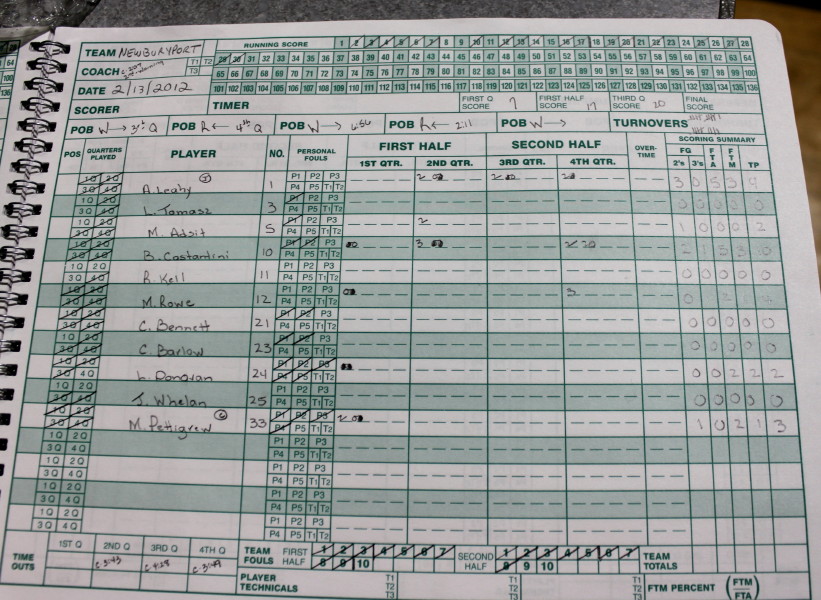 TEAM NEWBURYPORT
RUNNING SCORE 1 2 3 4 5 6 7 8 9 10 11 12 13 14 15 16 17 18 19 20 21 22 23 24 25 26 27 28
COACH T1 T2 29 30 31 32 33 34 35 36 37 38 39 40 41 42 43 44 45 46 47 48 49 50 51 52 53 54 55 56 57 58 59 60 61 62 63 64
T3 65 66 67 68 69 70 71 72 73 74 75 76 77 78 79 80 81 82 83 84 85 86 87 88 89 90 91 92 93 94 95 96 97 98 99 100
DATE 2/13/2012 101 102 103 104 105 106 107 108 109 110 111 112 113 114 115 116 117 118 119 120 121 122 123 124 125 126 127 128 129 130 131 132 133 134 135 136
SCORER TIMER FIRST Q SCORE 9 FIRST HALF SCORE 17 THIRD Q SCORE 20 FINAL SCORE
POB W → 3rd Q POB R ← 4th Q POB W → 6:56 POB R ← 2:11 POB W → TURNOVERS
POS QUARTERS PLAYED PLAYER NO. PERSONAL FOULS FIRST HALF SECOND HALF OVER-TIME SCORING SUMMARY
1ST QTR. 2ND QTR. 3RD QTR. 4TH QTR. FG 2's 3's FTA FTM TP
1Q 2Q 3Q 4Q A. Leahy 1 P1 P2 P3 P4 P5 T1 T2 3 0 5 3 9
1Q 2Q 3Q 4Q L. Tamasz 3 P1 P2 P3 P4 P5 T1 T2 0 0 0 0 0
1Q 2Q 3Q 4Q M. Adsit 5 P1 P2 P3 P4 P5 T1 T2 2 1 0 0 0 2
1Q 2Q 3Q 4Q B. Costantini 10 P1 P2 P3 P4 P5 T1 T2 3
1Q 2Q 3Q 4Q R. Kell 11 P1 P2 P3 P4 P5 T1 T2 0 0 0 0 0
1Q 2Q 3Q 4Q M. Rowe 12 P1 P2 P3 P4 P5 T1 T2 3 0
1Q 2Q 3Q 4Q C. Bennett 21 P1 P2 P3 P4 P5 T1 T2 0 0 0 0 0
1Q 2Q 3Q 4Q C. Barlow 23 P1 P2 P3 P4 P5 T1 T2 0 0 0 0 0
1Q 2Q 3Q 4Q L. Donovan 24 P1 P2 P3 P4 P5 T1 T2 0 0 2 2 2
1Q 2Q 3Q 4Q J. Whelan 25 P1 P2 P3 P4 P5 T1 T2 0 0 0 0 0
1Q 2Q 3Q 4Q M. Pettigrew 33 P1 P2 P3 P4 P5 T1 T2 2 1 0 2 1 3
1Q 2Q 3Q 4Q P1 P2 P3 P4 P5 T1 T2
1Q 2Q 3Q 4Q P1 P2 P3 P4 P5 T1 T2
1Q 2Q 3Q 4Q P1 P2 P3 P4 P5 T1 T2
1Q 2Q 3Q 4Q P1 P2 P3 P4 P5 T1 T2
TIME OUTS 1ST Q 2ND Q 3RD Q 4TH Q TEAM FOULS FIRST HALF 1 2 3 4 5 6 7 8 9 10 SECOND HALF 1 2 3 4 5 6 7 8 9 10 TEAM TOTALS
PLAYER TECHNICALS T1 T2 T3 T1 T2 T3 T1 T2 T3 FTM PERCENT (FTM/FTA)